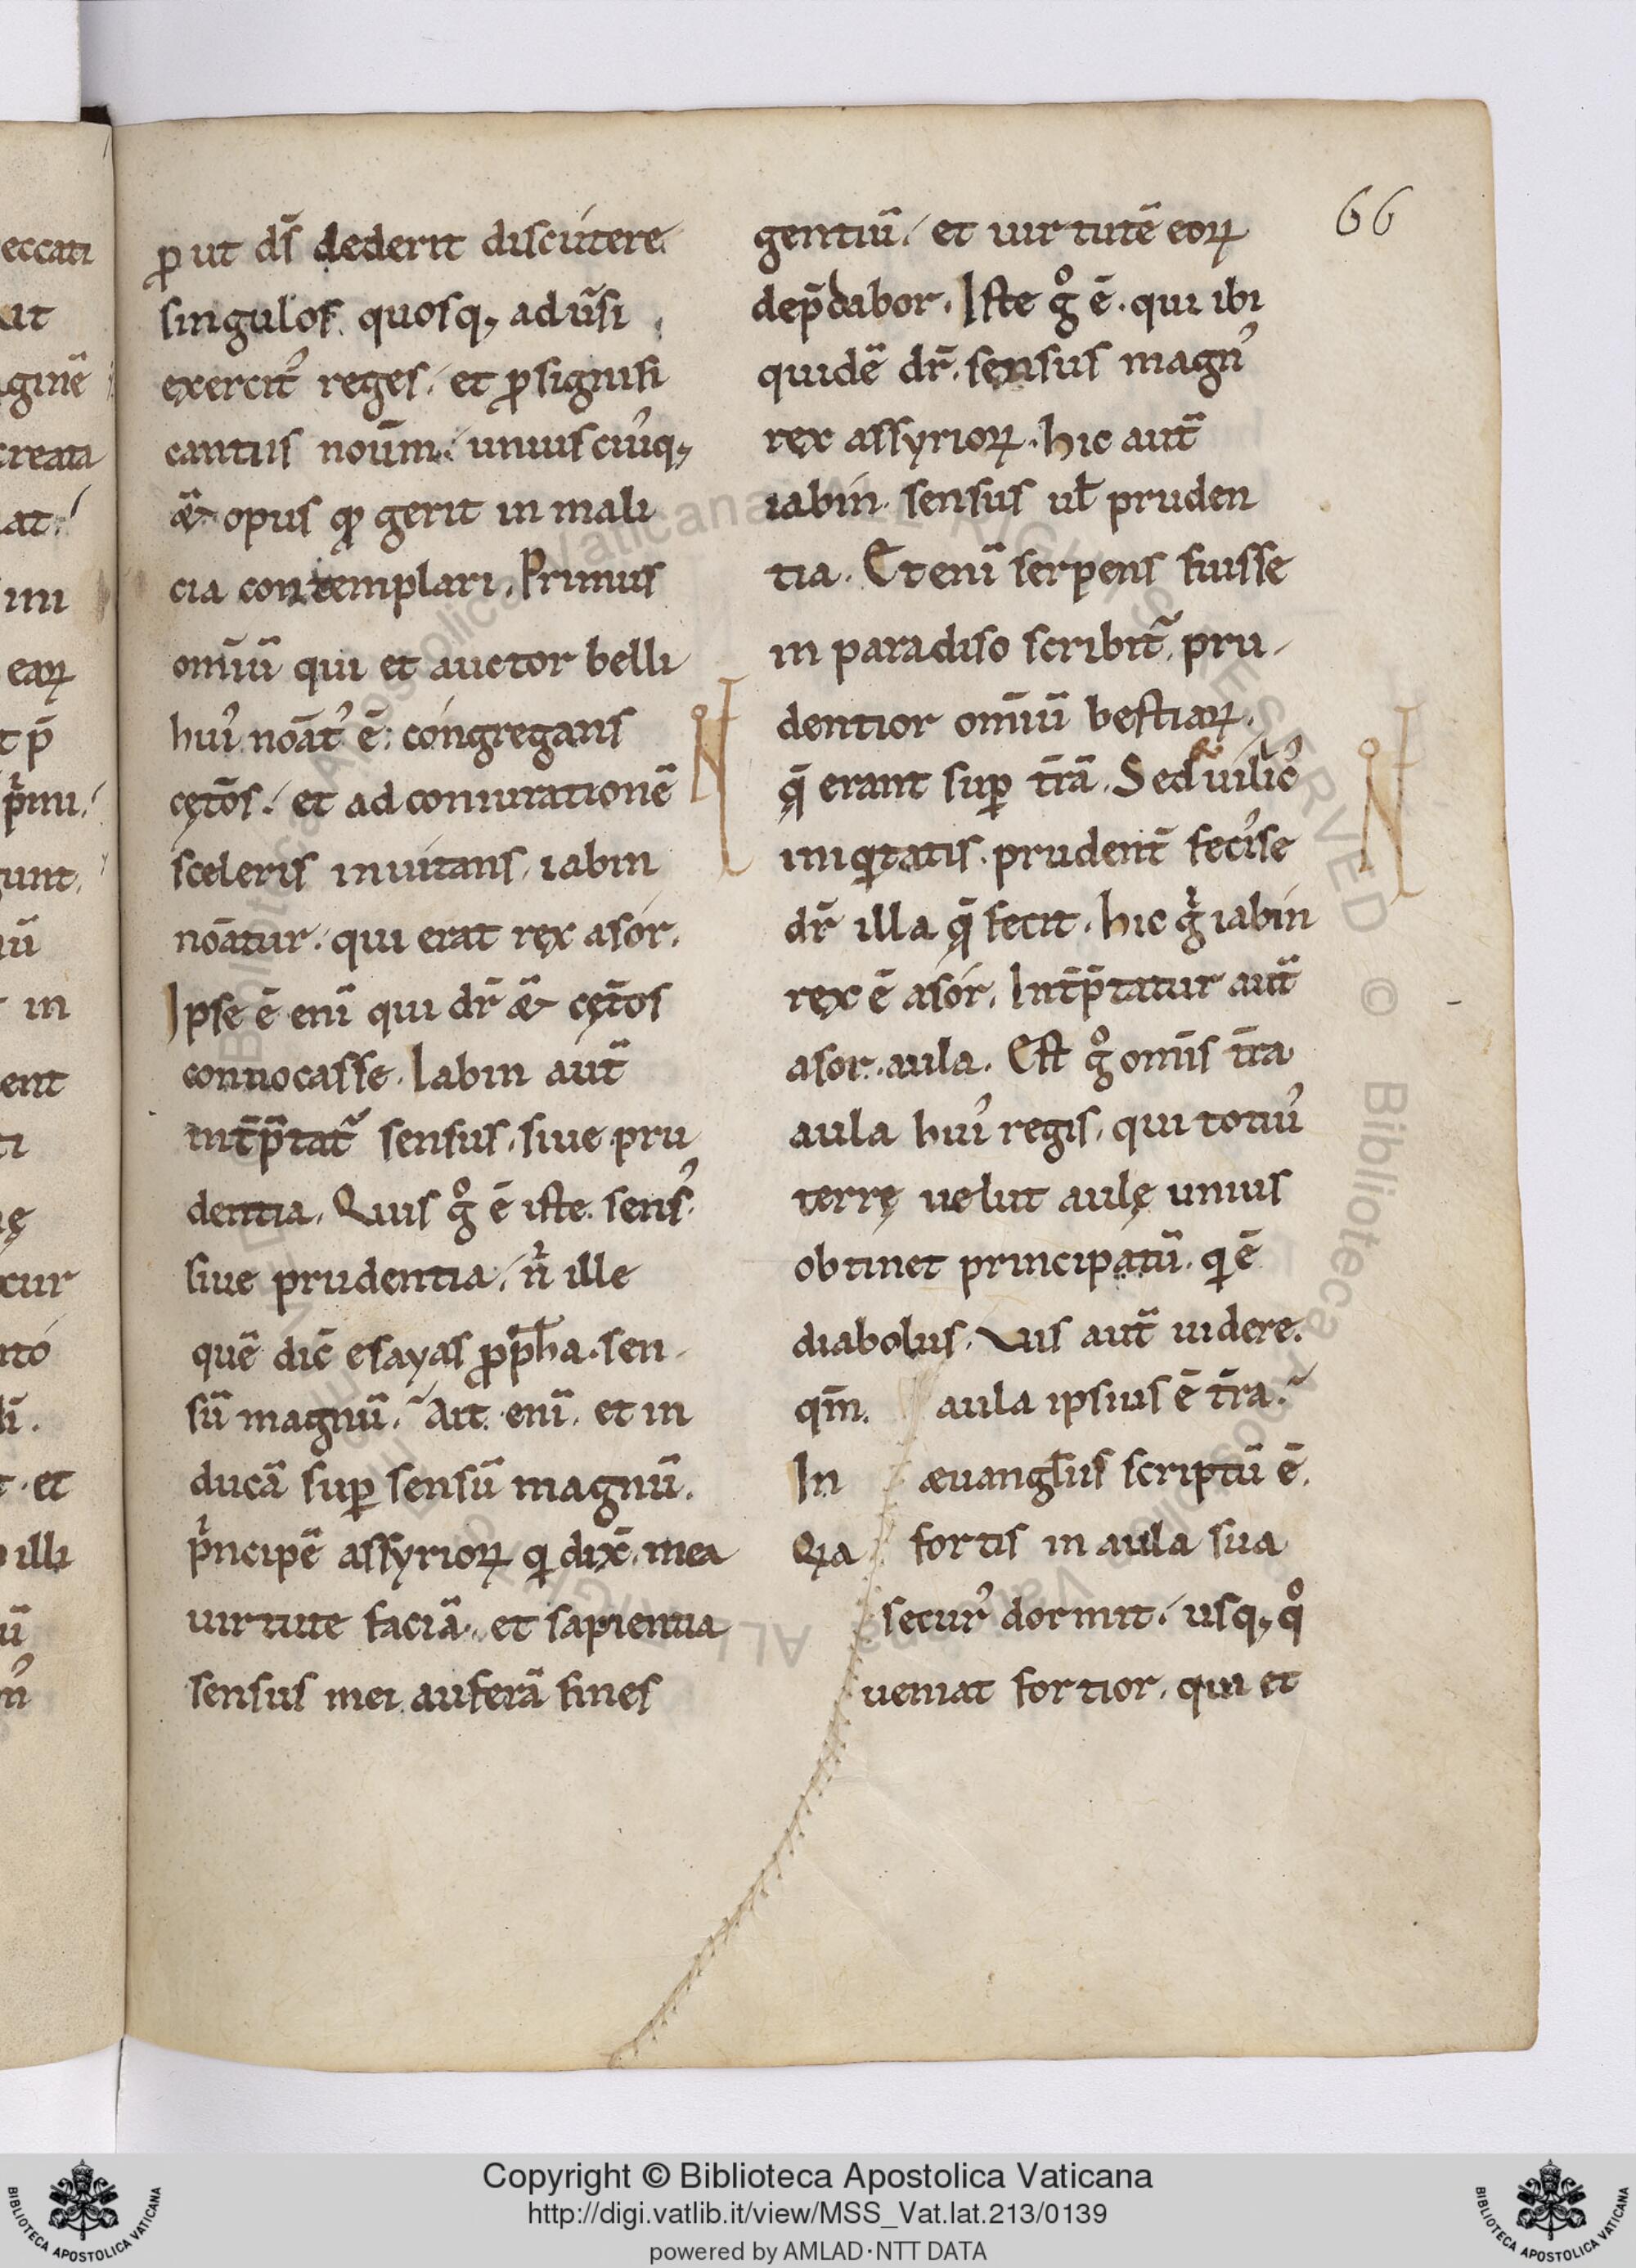 66
ꝓut ds̄ dederit discútere
singulos. quosq; adūsi
exercit᾽ reges. et ꝓsignifi
cantiis noūm. uniuscui᾽q;
& opus qđ gerit in mali
cia contemplari. Primus
om̄iū qui et auctor belli
hui᾽ noāt᾽ ē. congregans
cęt̄os. et ad coniurationē
sceleris inuitans. iabin
nōatur. qui erat rex asór.
Ipse ē eni̅ qui dr̄ & cęt̄os
conuocasse. Iabin aut̄
int̄p̄tat᾽ sensus. siue pru
dentia. Quis gͦ ē iste sens᾽
siue prudentia. n̄ ille
quē dic̄ esayas ꝓp̄ha. sen
sū magnū. Ait eni̅. et in
ducā suꝑ sensū magnū.
pͥncipē assyrioꝝ qͥ dix̄. mea
uirtute faciā. et sapientia
sensus mei auferā fines
gentiū. et uirtutē eoꝝ
dep̄dabor. Iste gͦ ē. qui ibi
quidē dr̄. sensus magn᾽
rex assyrioꝝ. hic aut̄
iabin. sensus ul̄ pruden
tia. Et eni̅ serpens fuisse
in paradiso scribit᾽. pru
dentior om̄iū bestiaꝝ.
q̄ erant suꝑ t̄rā. Sed & uilic᾽
iniqͥtatis. prudent̄ fecisse
dr̄ illa q̄ fecit. hic gͥ iabin
rex ē asór. Int̄p̄tatur aut̄
asor. aula. Est gͦ omīs t̄ra
aula hui᾽ regis. qui toti᾽
terrę uelut aulę unius
obtinet principatū. qͥ ē
diabolus. Vis aut̄ uidere.
qm̄. aula ipsius ē t̄ra.
In æuangl̄iis scriptū ē.
Qͥa fortis in aula sua
secur᾽ dormit. usq; qͦ
ueniat fortior. qui et
Copyright © Biblioteca Apostolica Vaticana
http://digi.vatlib.it/view/MSS_Vat.lat.213/0139
powered by AMLAD·NTT DATA
BIBLIOTECA APOSTOLICA VATICANA
BIBLIOTECA APOSTOLICA VATICANA